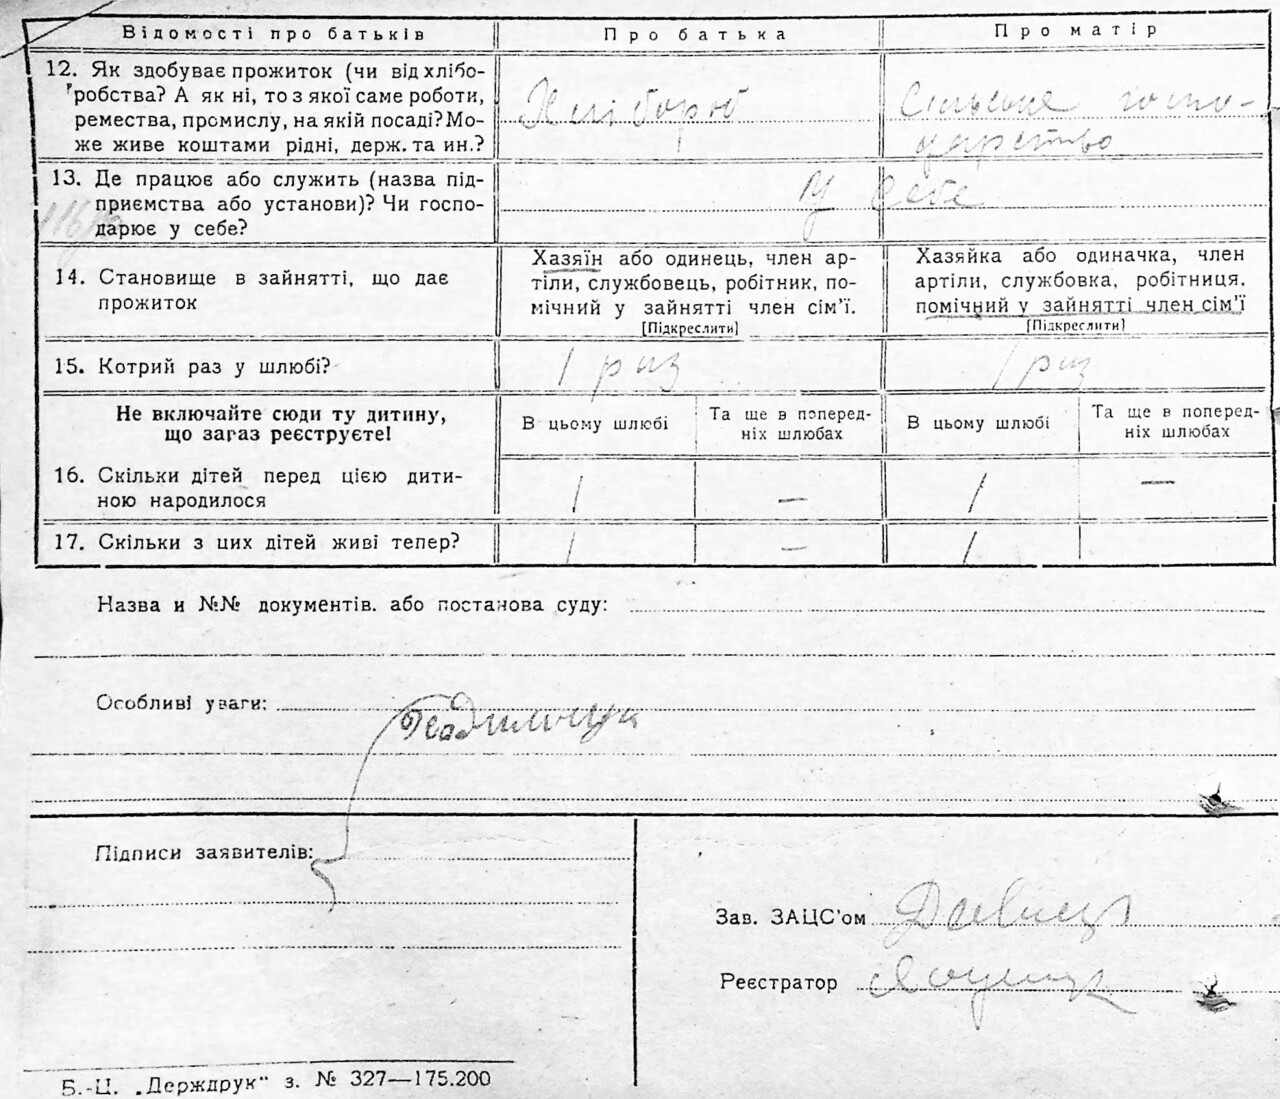 Відомості про батьків
Про батька
Про матір
12. Як здобуває прожиток (чи від хлібо-
робства? А як ні, то з якої саме роботи,
ремества, промислу, на якій посаді? Мо-
же живе коштами рідні, держ. та ин.?
Хлібороб
Сільське госпо-
дарство
13. Де працює або служить (назва під-
приємства або установи)? Чи госпо-
дарює у себе?
У себе
14. Становище в зайнятті, що дає
прожиток
Хазяїн або одинець, член ар-
тіли, службовець, робітник, по-
мічний у зайнятті член сім'ї.
[Підкреслити]
Хазяйка або одиначка, член
артіли, службовка, робітниця.
помічний у зайнятті член сім'ї
[Підкреслити]
15. Котрий раз у шлюбі?
1 раз
1 раз
Не включайте сюди ту дитину,
що зараз реєструєте!
В цьому шлюбі
Та ще в поперед-
ніх шлюбах
В цьому шлюбі
Та ще в поперед-
ніх шлюбах
16. Скільки дітей перед цією дити-
ною народилося
1 — 1 —
17. Скільки з цих дітей живі тепер?
1 — 1
Назва и №№ документів. або постанова суду:
Особливі уваги:
Підписи заявителів:
Зав. ЗАЦС'ом
Реєстратор
Б.-Ц. „Держдрук" з. № 327—175.200